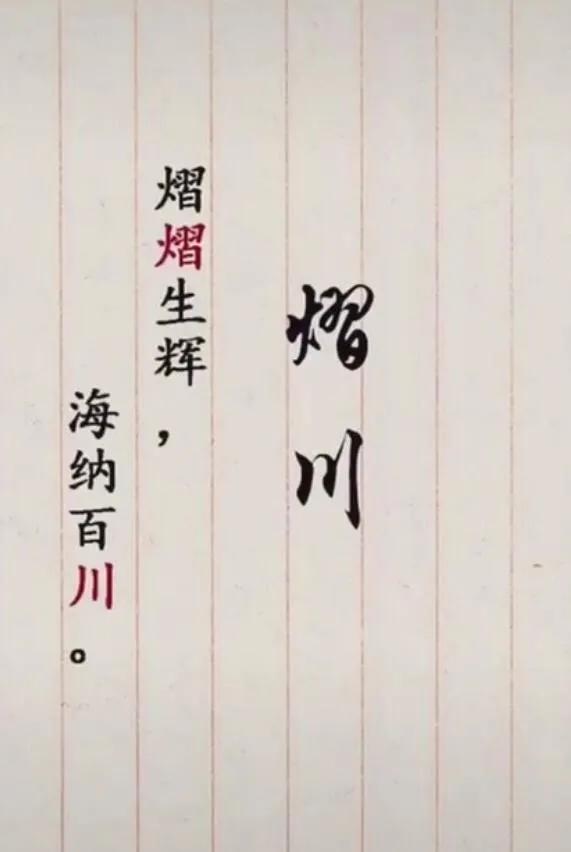 熠川
熠熠生辉，
海纳百川。